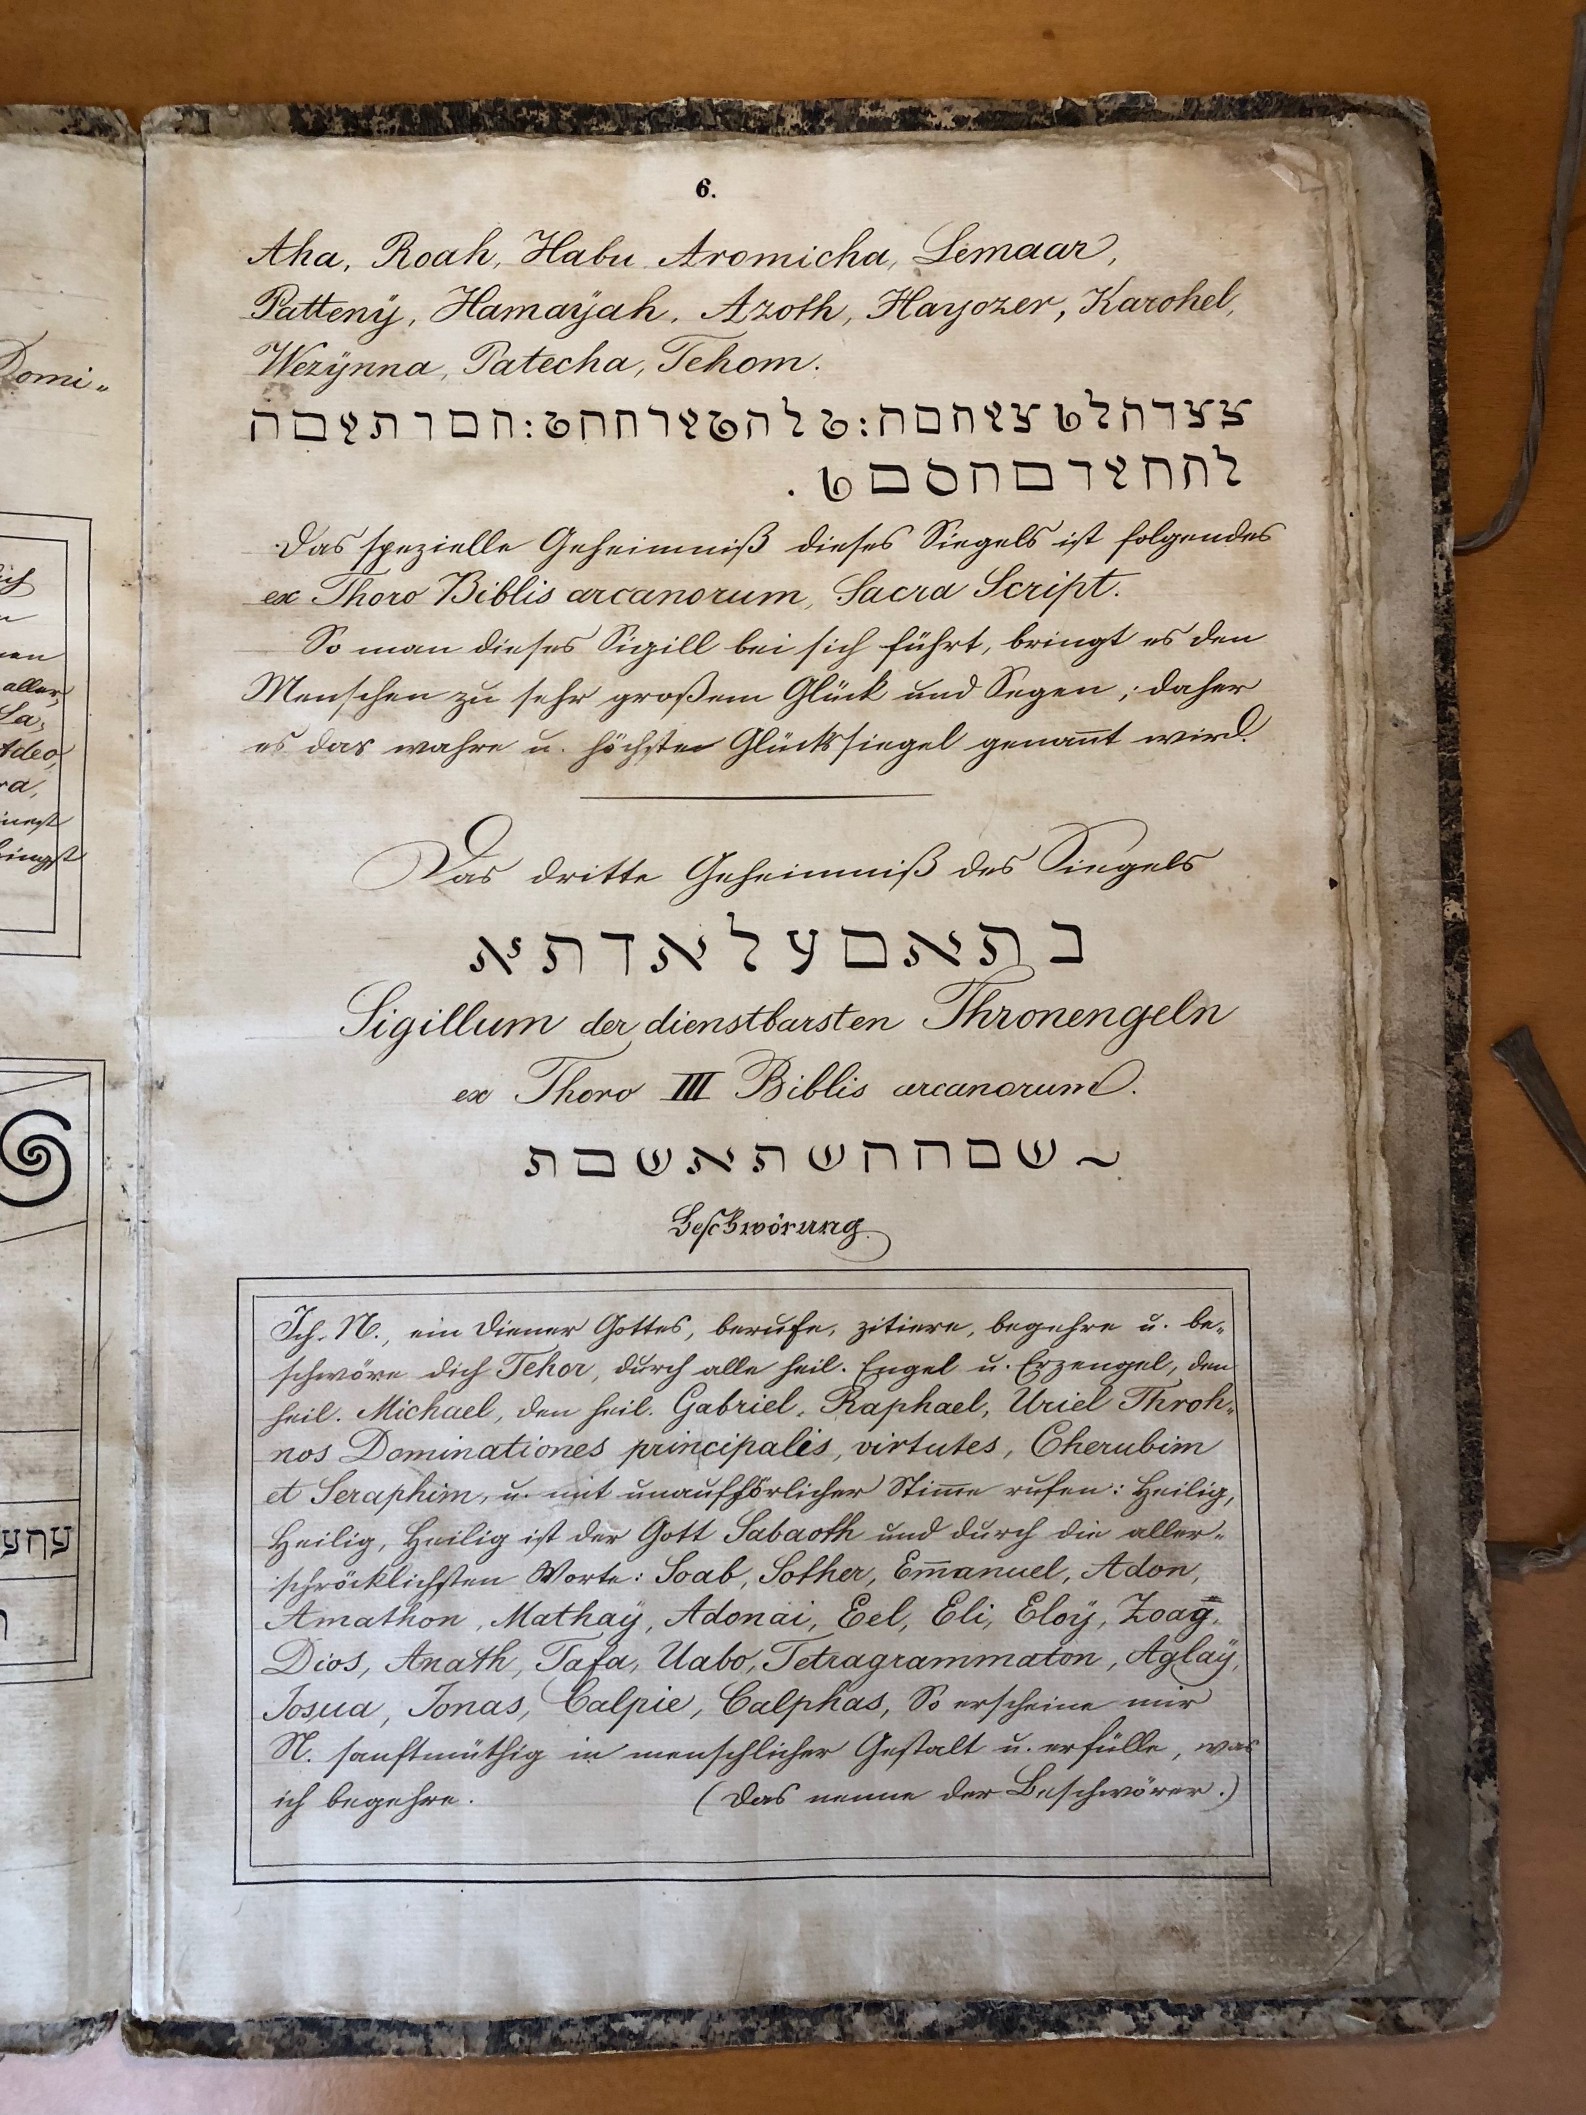 6.
Aha, Roah, Habu Aromicha, Lemaar,
Pattenÿ, Hamaÿah, Azoth, Hayozer, Karohel,
Wezÿnna, Patecha, Tehom.
Das spezielle Geheimniß dieses Siegels ist folgendes
ex Thoro Biblis arcanorum, Sacra Script.
So man dieses Sigill bei sich führt, bringt es den
Menschen zu sehr großem Glück und Segen; daher
es das wahre u. höchste Glückssiegel genannt wird.
Das dritte Geheimniß des Siegels
Sigillum der dienstbarsten Thronengeln
ex Thoro III Biblis arcanorum.
Beschwörung
Ich. N., ein Diener Gottes, berufe, zitiere, begehre u. be-
schwöre dich Tehor, durch alle heil. Engel u. Erzengel, den
heil. Michael, den heil. Gabriel, Raphael, Uriel Throh-
nos Dominationes principalis, virtutes, Cherubim
et Seraphim, u. mit unaufhörlicher Stimme rufen: Heilig,
Heilig, Heilig ist der Gott Sabaoth und durch die aller-
schröcklichsten Worte: Soab, Sother, Em̅anuel, Adon,
Amathon, Mathaÿ, Adonai, Eel, Eli, Eloÿ, Zoag,
Dios, Anath, Tafa, Uabo, Tetragrammaton, Aglaÿ,
Josua, Jonas, Calpie, Calphas, So erscheine mir
N. sanftmüthig in menschlicher Gestalt u. erfülle, was
ich begehre. (Das nenne der Beschwörer.)